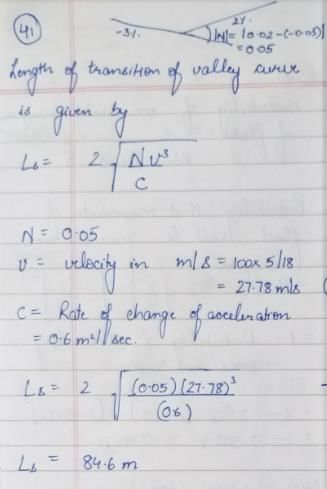 41
-3%
2%
|N| = |0.02-(-0.03)|
= 0.05
Length of transition of valley curve
is given by
Ls = 2 √(Nv³/C)
N = 0.05
v = velocity in m/s = 100x 5/18
= 27.78 m/s
C = Rate of change of acceleration
= 0.6 m²/sec.
Ls = 2 √((0.05) (27.78)³/(0.6))
Ls = 84.6 m